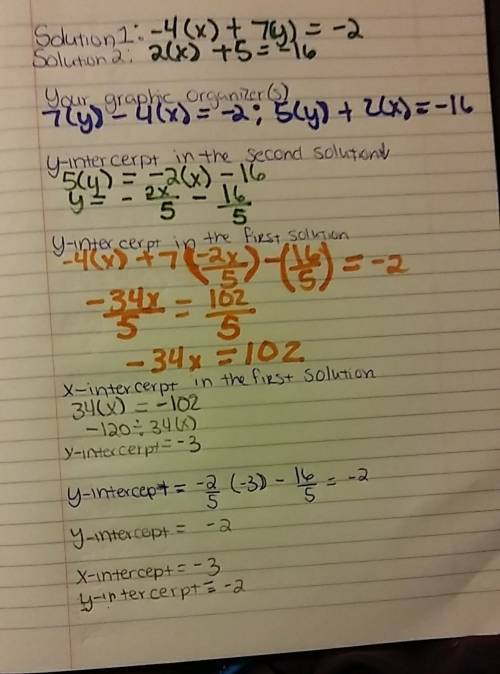 Solution 1: -4(x) + 7(y) = -2
Solution 2: 2(x) + 5 = -16
Your graphic organizer(s)
7(y) - 4(x) = -2; 5(y) + 2(x) = -16
y-intercerpt in the second solution
5(y) = -2(x) - 16
y = - 2x/5 - 16/5
y-intercerpt in the first solution
-4(x) + 7(-2x/5) - (16/5) = -2
-34x/5 = 102/5
-34x = 102
x-intercerpt in the first solution
34(x) = -102
-120 ÷ 34(x)
x-intercerpt = -3
y-intercept = -2/5 (-3) - 16/5 = -2
y-intercept = -2
x-intercept = -3
y-intercerpt = -2